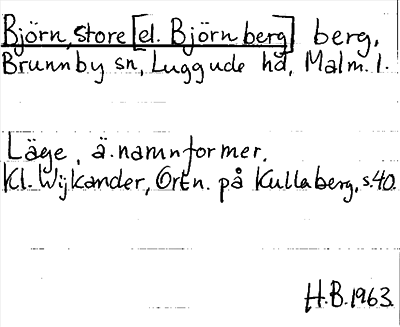 Björn, store [el. Björnberg] berg,
Brunnby sn, Luggude hd, Malm. l.
Läge, ä. namnformer.
Kl. Wijkander, Ortn. på Kullaberg, s. 40.
H.B. 1963.